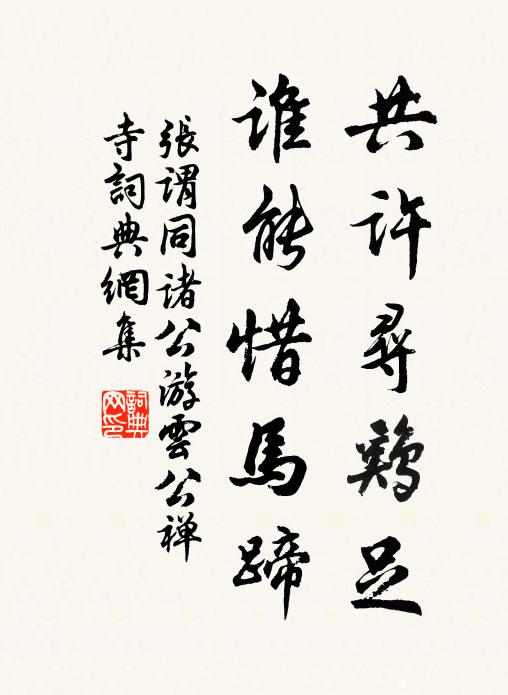 共许尋鷄足
谁能惜馬蹄
張谓同诸公游雲公禅
寺詞典網集
詞典网印